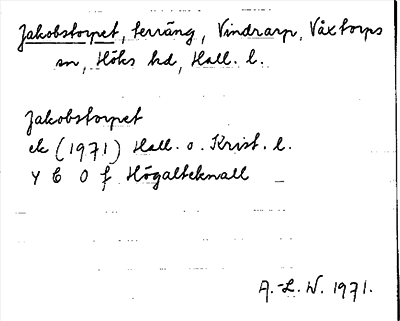 Jakobstorpet, terräng, Vindrarp, Våxtorps
sn, Höks hd, Hall. l.
Jakobstorpet
ek (1971) Hall. o. Krist. l.
4 C 0 f Högalteknall
A.-L. W. 1971.